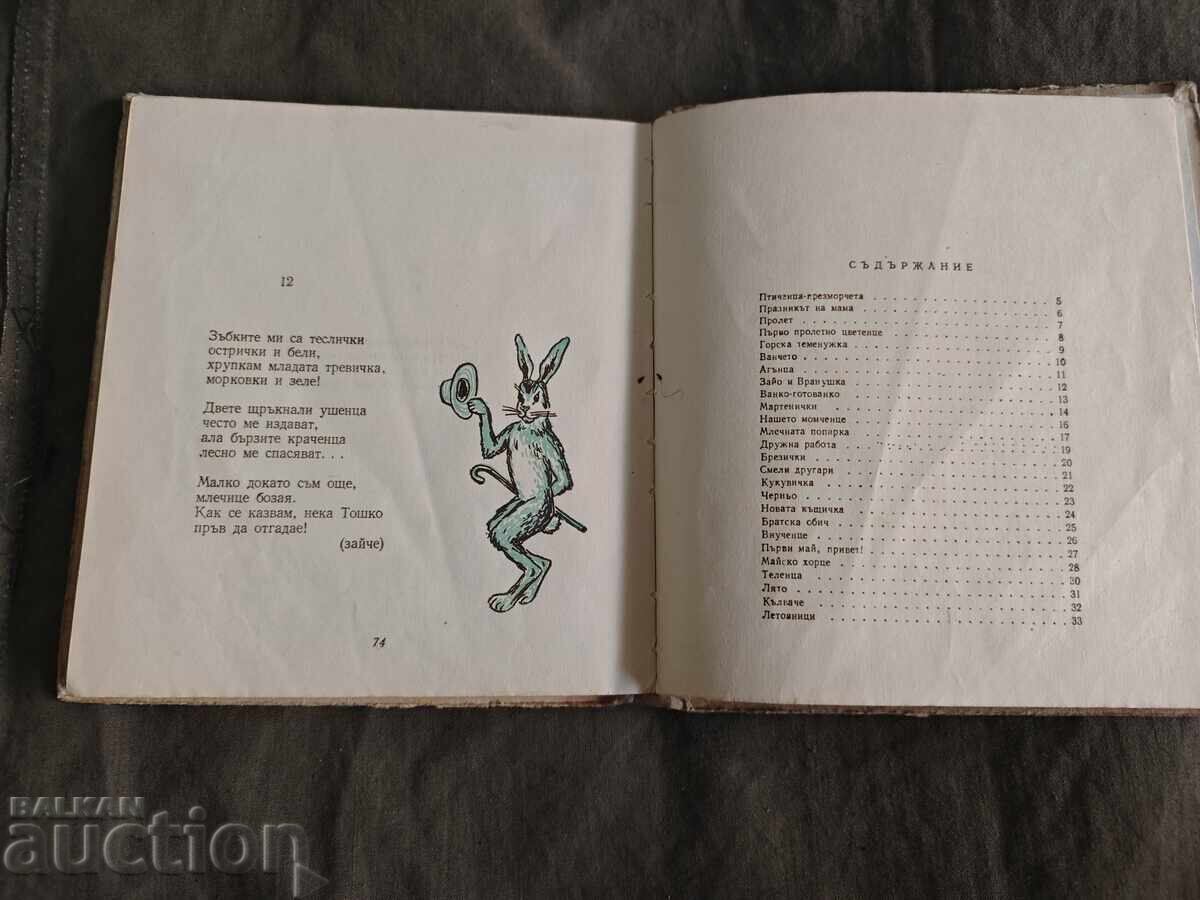 12
Зъбките ми са теслички
острички и бели,
хрупкам младата тревичка,
морковки и зеле!
Двете щръкнали ушенца
често ме издават,
ала бързите краченца
лесно ме спасяват. . .
Малко докато съм още,
млечице бозая.
Как се казвам, нека Тошко
пръв да отгадае!
(зайче)
74
СЪДЪРЖАНИЕ
Птиченца-презморчета . . . . . . . . . . . . . 5
Празникът на мама . . . . . . . . . . . . . . 6
Пролет . . . . . . . . . . . . . . . . . . 7
Първо пролетно цветенце . . . . . . . . . . . . 8
Горска теменужка . . . . . . . . . . . . . . 9
Ванчето . . . . . . . . . . . . . . . . . 10
Агънца . . . . . . . . . . . . . . . . . . 11
Зайо и Вранушка . . . . . . . . . . . . . . 12
Ванко-готованко . . . . . . . . . . . . . . 13
Мартенички . . . . . . . . . . . . . . . . 14
Нашето момченце . . . . . . . . . . . . . . 16
Млечната попарка . . . . . . . . . . . . . . 17
Дружна работа . . . . . . . . . . . . . . . 19
Брезички . . . . . . . . . . . . . . . . . 20
Смели другари . . . . . . . . . . . . . . . 21
Кукувичка . . . . . . . . . . . . . . . . 22
Черньо . . . . . . . . . . . . . . . . . . 23
Новата къщичка . . . . . . . . . . . . . . . 24
Братска обич . . . . . . . . . . . . . . . 25
Внученце . . . . . . . . . . . . . . . . . 26
Първи май, привет! . . . . . . . . . . . . . 27
Майско хорце . . . . . . . . . . . . . . . 28
Теленца . . . . . . . . . . . . . . . . . 30
Лято . . . . . . . . . . . . . . . . . . . 31
Кълваче . . . . . . . . . . . . . . . . . 32
Летовници . . . . . . . . . . . . . . . . 33
BALKAN
auction